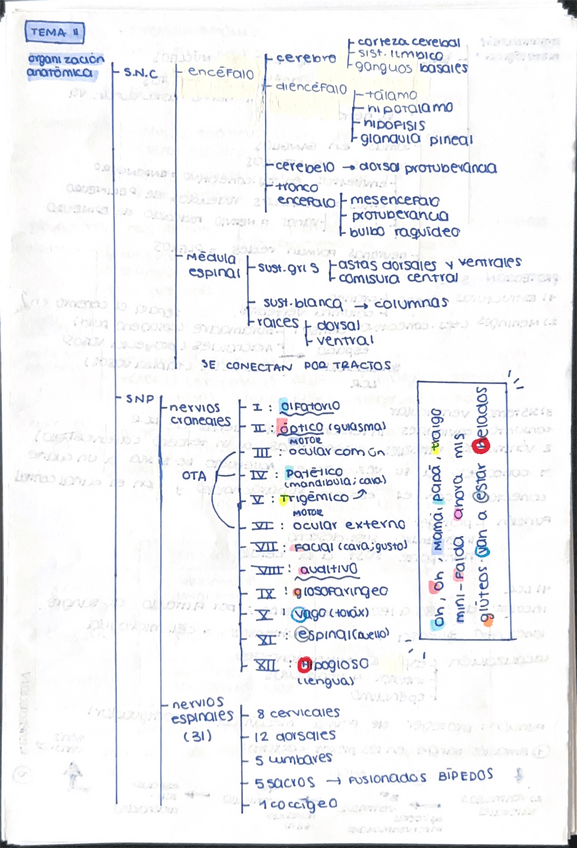 TEMA 11
organización
anatómica
S.N.C
encéfalo
cerebro
corteza cerebral
sist. límbico
ganglios basales
diencéfalo
tálamo
hipotálamo
hipofisis
glandula pineal
cerebelo → dorsal protuberancia
tronco
encefalo
mesencefalo
protuberancia
bulbo raquideo
Médula
espinal
sust. gris
astas dorsales y ventrales
comisura central
sust. blanca → columnas
raices
dorsal
ventral
SE CONECTAN POR TRACTOS
SNP
nervios
craneales
I : olfatorio
II : óptico (quiasma)
MOTOR
III : ocular común
OTA
IV : patético
(mandibula; cara)
V : Trigémico
MOTOR
VI : ocular externo
VII : Facial (cara; gusto)
VIII : auditivo
IX : glosofaringeo
X : Vago (torax)
XI : espinal (cuello)
XII : Hipogloso
(lengua)
Oh, Oh, Mamá, papá, traigo
mini-falda ahora mis
glúteos van a estar helados
nervios
espinales
(31)
8 cervicales
12 dorsales
5 lumbares
5 sacros → FUSIONADOS BÍPEDOS
1 coccigeo